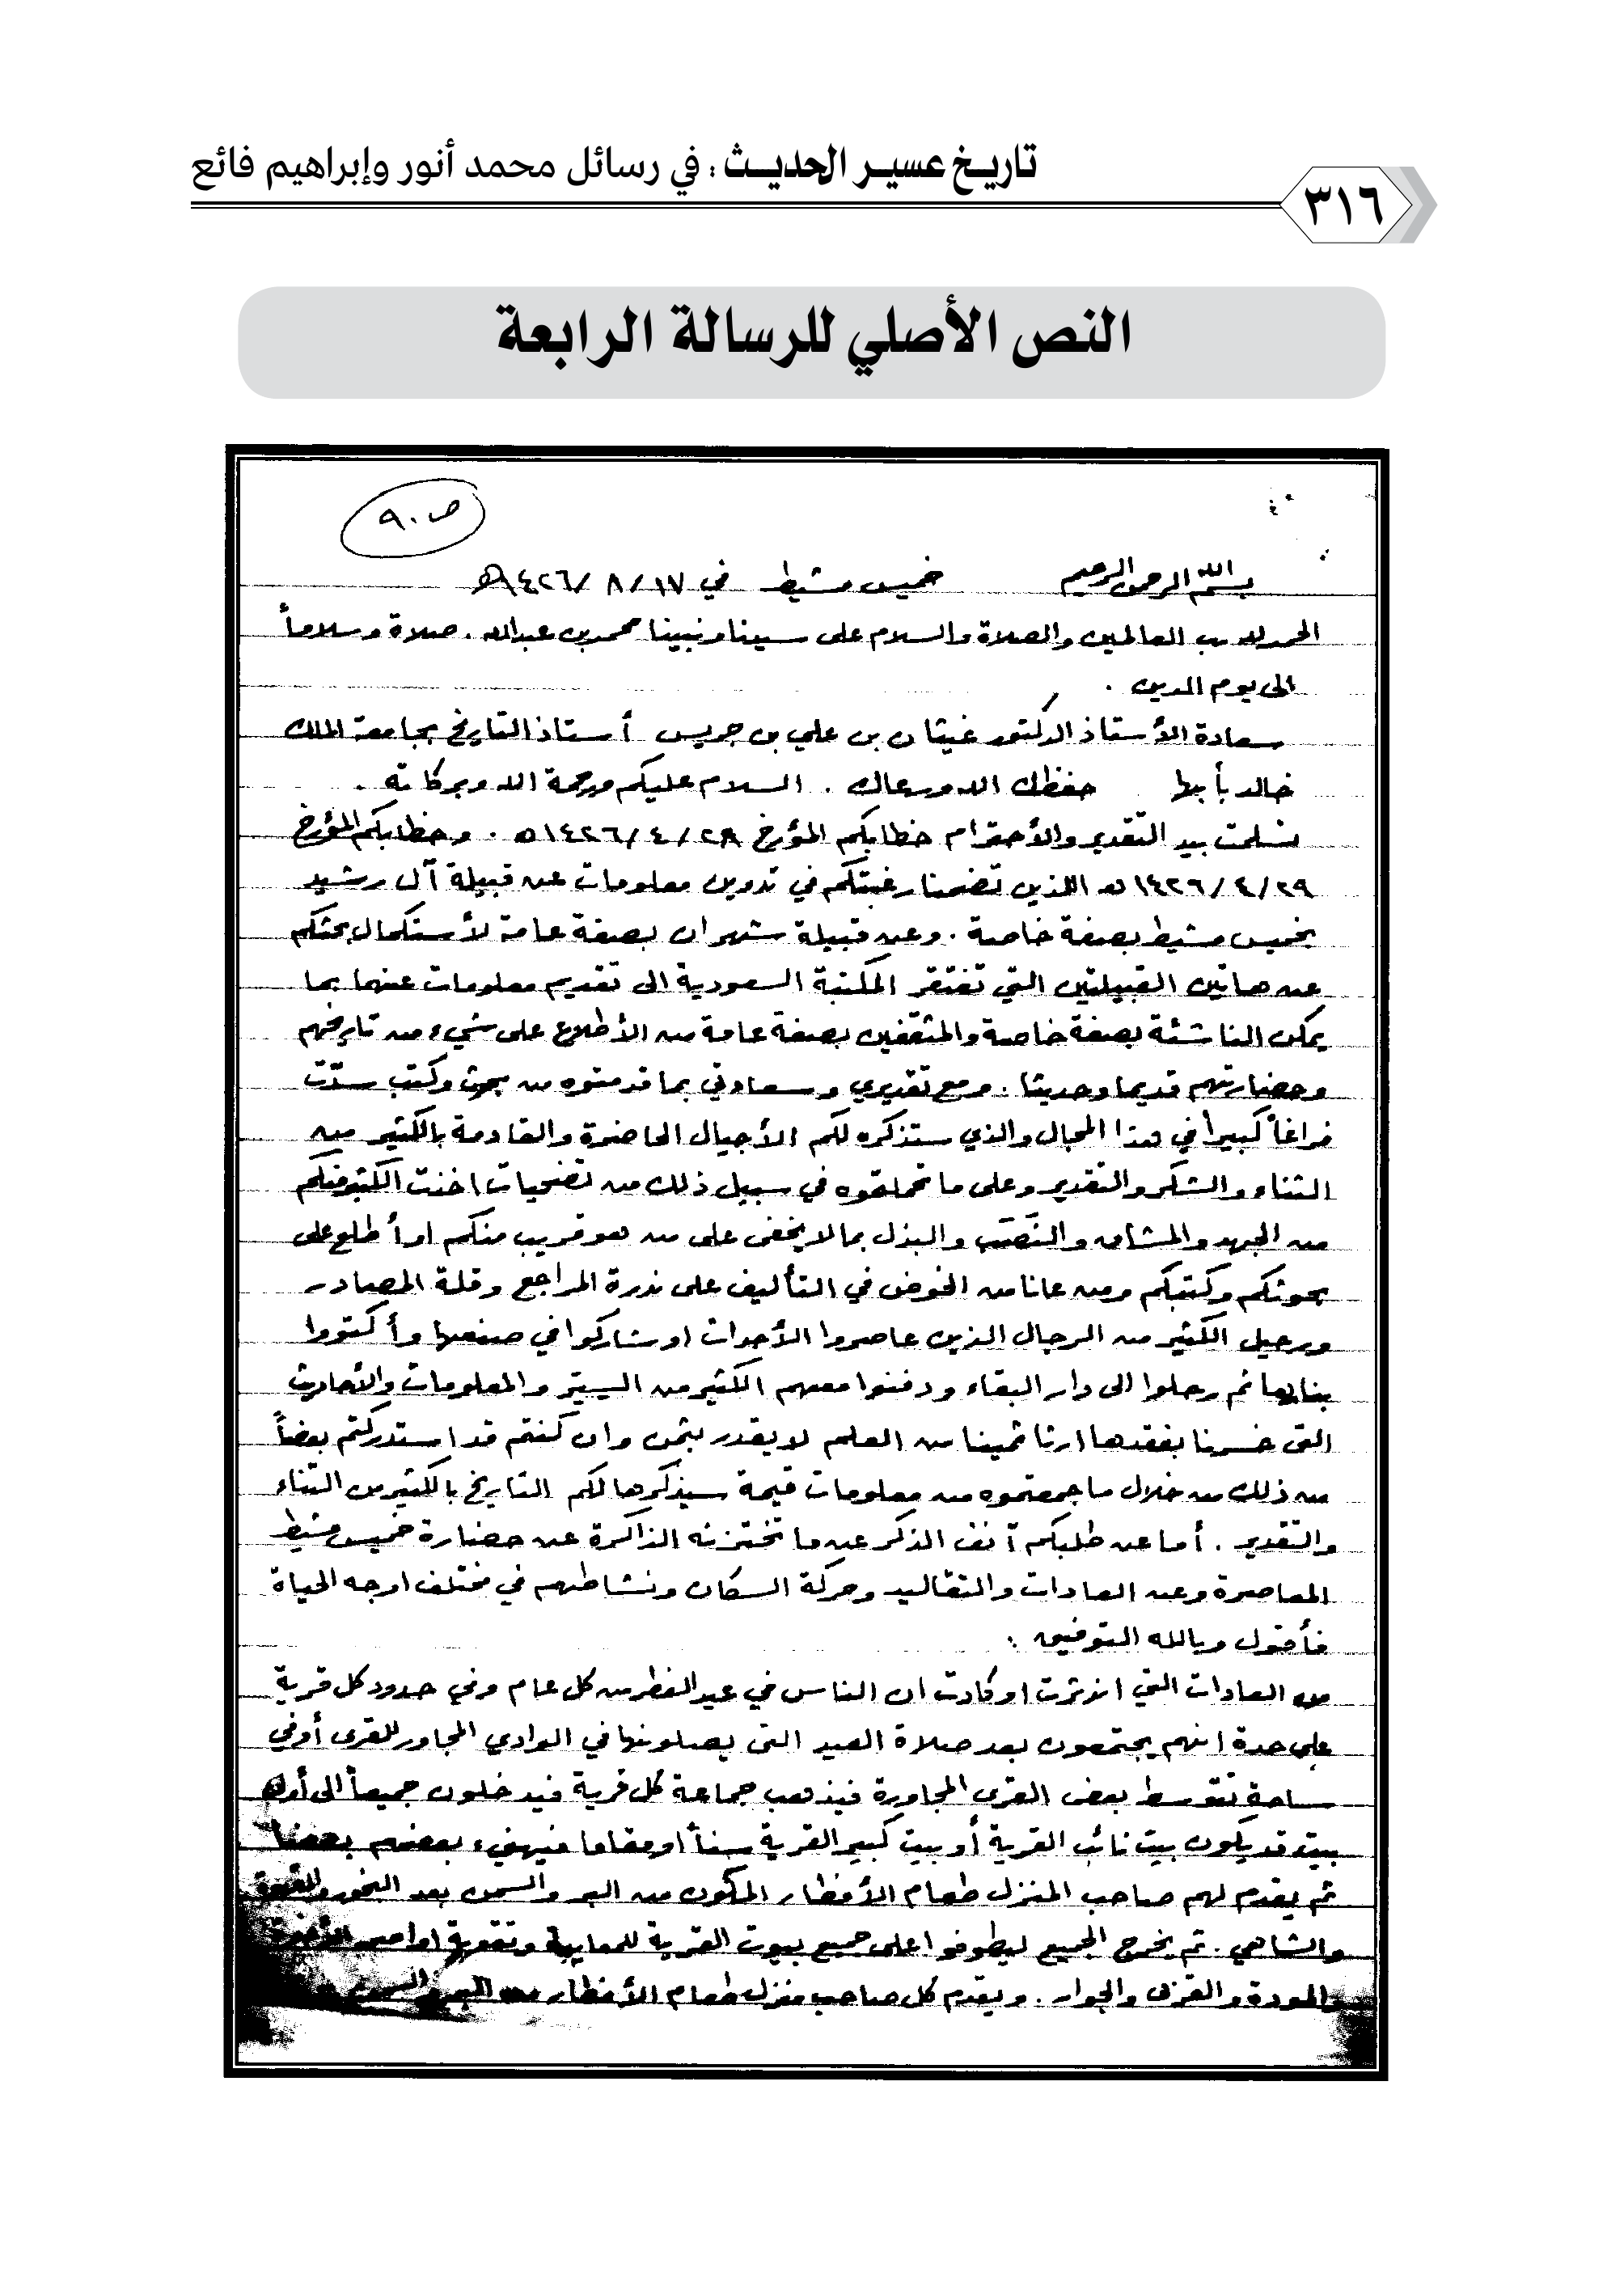 تاريخ عسير الحديث : في رسائل محمد أنور وإبراهيم فائع
٣١٦
النص الأصلي للرسالة الرابعة
ص ٩٠
بسم الله الرحمن الرحيم خميس مشيط في ١٧/ ٨ /١٤٢٦هـ
الحمد لله رب العالمين والصلاة والسلام على سيدنا ونبينا محمد بن عبدالله . صلاة وسلاماً
الى يوم الدين .
سعادة الأستاذ الدكتور غيثان بن علي بن جريس أستاذ التاريخ بجامعة الملك
خالد بأبها حفظك الله ورعاك . السلام عليكم ورحمة الله وبركاته .
تسلمت بيد التقدير والأحترام خطابكم المؤرخ ٢٨/ ٤ /١٤٢٦هـ . وخطابكم المؤرخ
٢٩/ ٤ /١٤٢٦هـ اللذين تضمنا رغبتكم في تدوين معلومات عن قبيلة آل رشيد
بخميس مشيط بصفة خاصة . وعن قبيلة شهران بصفة عامة لأستكمال بحثكم
عن هاتين القبيلتين التي تفتقر المكتبة السعودية الى تقديم معلومات عنهما بما
يمكن الناشئة بصفة خاصة والمثقفين بصفة عامة من الأطلاع على شيء من تاريخهم
وحضارتهم قديما وحديثا . ومع تقديري وسعادتي بما قدمتوه من بحوث وكتب سدّت
فراغاً كبيراً في هذا المجال والذي ستذكره لكم الأجيال الحاضرة والقادمة بالكثير من
الثناء والشكر والتقدير وعلى ما تحملتوه في سبيل ذلك من تضحيات اخذت الكثير منكم
من الجهد والمشاق والنَصَب والبذل بما لا يخفى على من هو قريب منكم او أطلع على
بحوثكم وكتبكم ومن عانا من الخوض في التأليف على ندرة المراجع وقلة المصادر
ورحيل الكثير من الرجال الذين عاصروا الأحداث او شاركوا في صنعها وأكتووا
بنارها ثم رحلوا الى دار البقاء ودفنوا معهم الكثير من السير والمعلومات والأحاديث
التى خسرنا بفقدها ارثا ثمينا من العلم لا يقدر بثمن وان كنتم قد استدركتم بعضاً
من ذلك من خلال ما جمعتموه من معلومات قيمة سيذكرها لكم التاريخ بالكثير من الثناء
والتقدير . أما عن طلبكم آنف الذكر عن ما تختزنه الذاكرة عن حضارة خميس مشيط
المعاصرة وعن العادات والتقاليد وحركة السكان ونشاطهم في مختلف اوجه الحياة
فأقول وبالله التوفيق :
من العادات التي اندثرت او كادت ان الناس في عيد الفطر من كل عام وفي حدود كل قرية
على حدة انهم يجتمعون بعد صلاة العيد التى يصلونها في الوادي المجاور للقرى أو في
ساحة تتوسط بعض القرى المجاورة فيذهب جماعة كل قرية فيدخلون جميعاً الى أول
بيت قد يكون بيت نائب القرية أو بيت كبير القرية سناً او مقاما فيهنيء بعضهم بعضا
ثم يقدم لهم صاحب المنزل طعام الأفطار المكون من البر والسمن بعد البخور والقهوة
والشاهي . ثم يخرج الجميع ليطوفوا على جميع بيوت القرية للمعايدة وتقوية اواصر الأخوة
والمودة والقربى والجوار . ويقدم كل صاحب منزل طعام الأفطار من البر والسمن